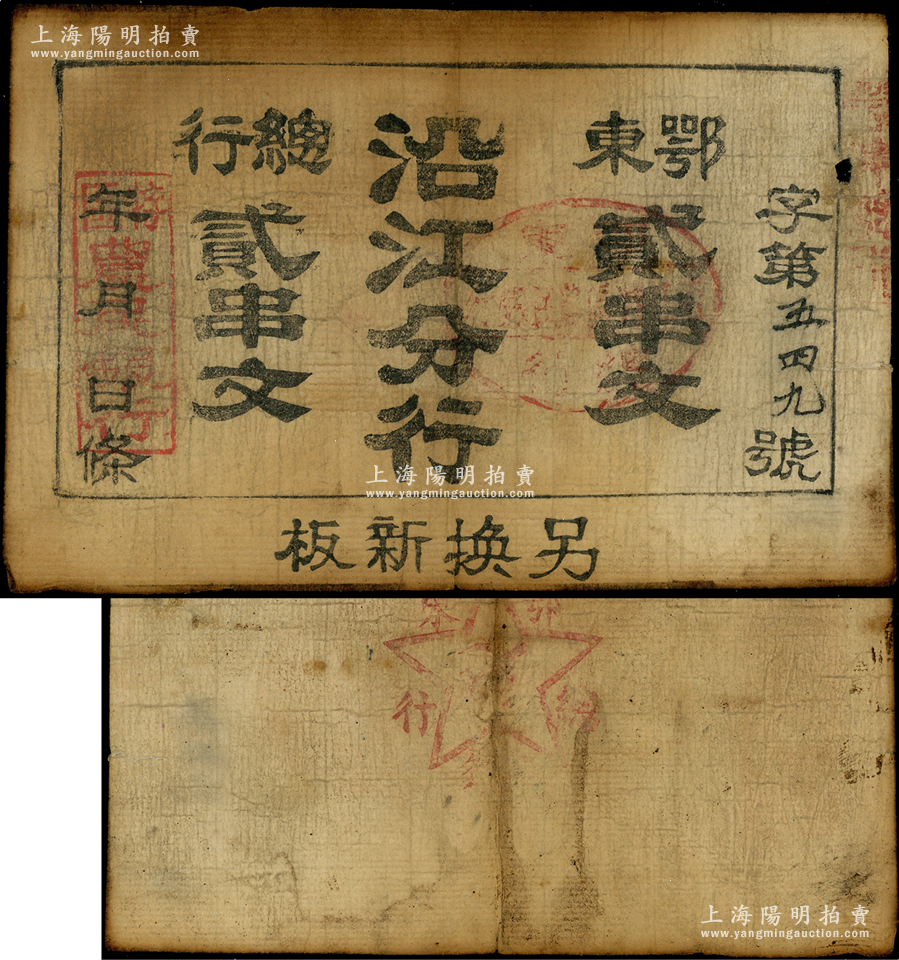 上海陽明拍賣
www.yangmingauction.com
鄂東
總行
字第五四九號
貳串文
沿江分行
貳串文
年月日條
另換新板
上海陽明拍賣
www.yangmingauction.com
行
上海陽明拍賣
www.yangmingauction.com